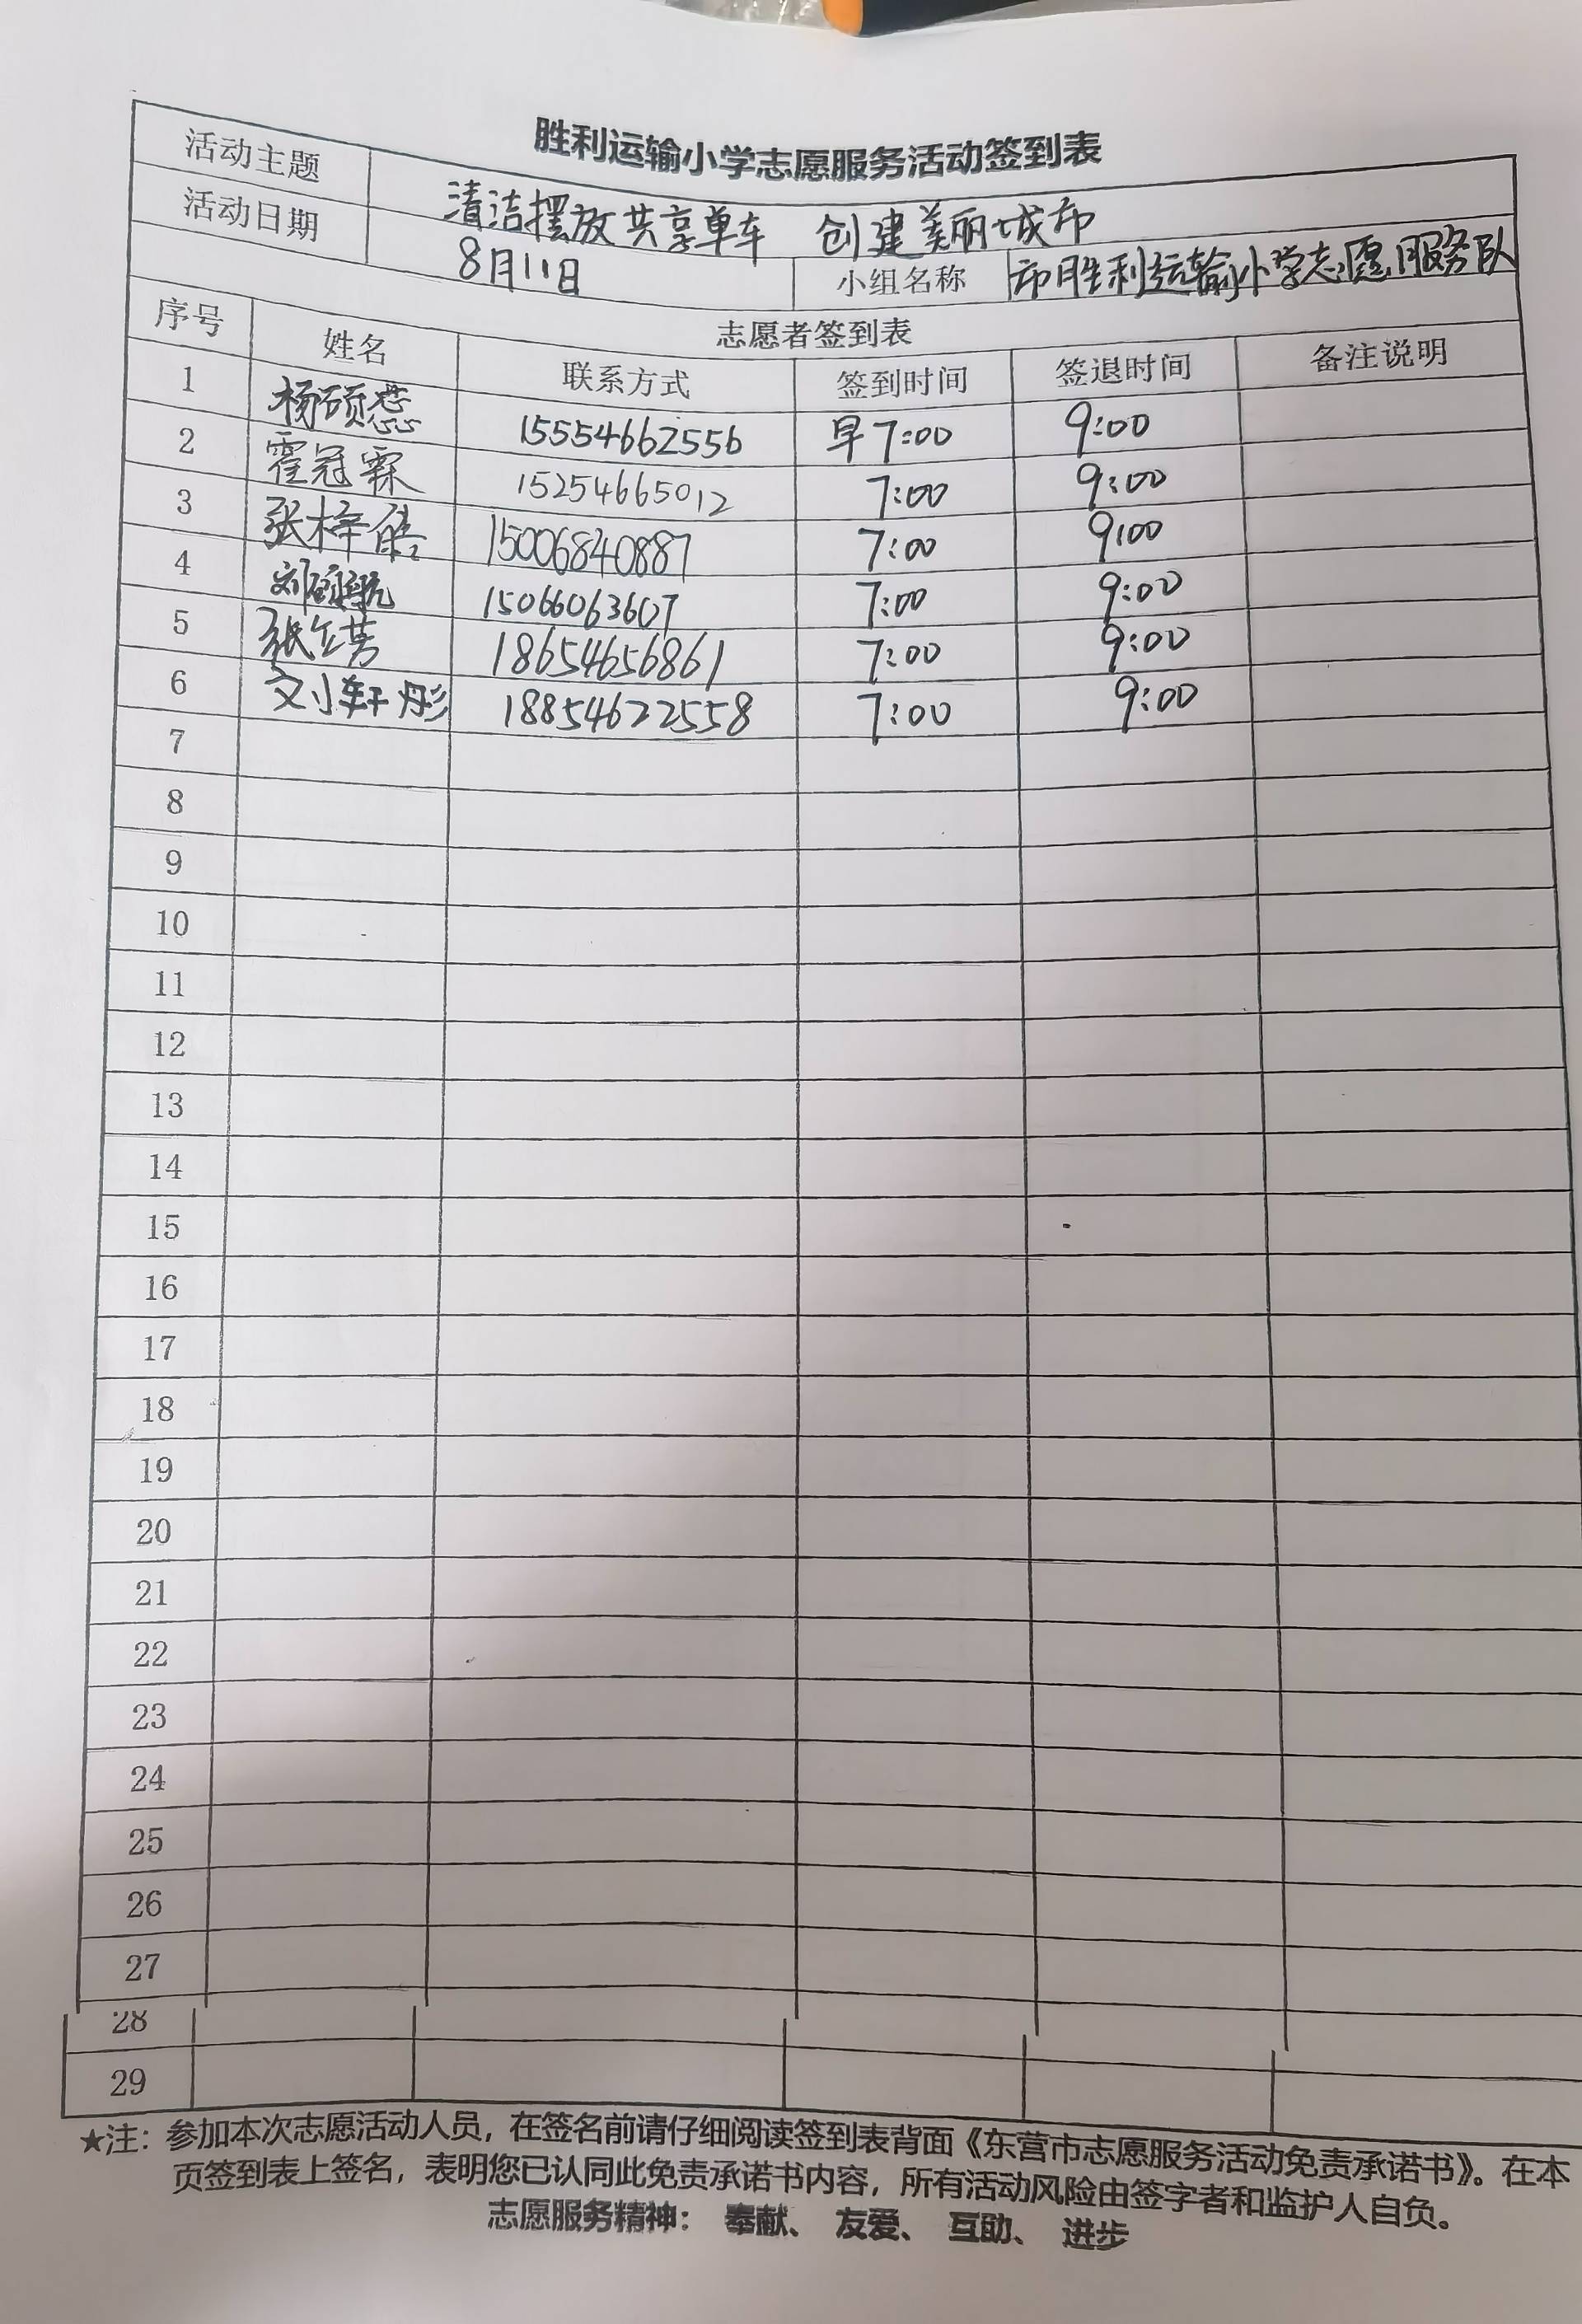 胜利运输小学志愿服务活动签到表
活动主题 清洁摆放共享单车 创建美丽城市
活动日期 8月11日 小组名称 市胜利运输小学志愿服务队
志愿者签到表
序号 姓名 联系方式 签到时间 签退时间 备注说明
1 杨硕蕊 15554662556 早7:00 9:00
2 霍冠霖 15254665012 7:00 9:00
3 张梓皓 15006840887 7:00 9:00
4 刘 15066063607 7:00 9:00
5 张立芳 18654656861 7:00 9:00
6 文小轩彤 18854622558 7:00 9:00
7
8
9
10
11
12
13
14
15
16
17
18
19
20
21
22
23
24
25
26
27
28
29
★注：参加本次志愿活动人员，在签名前请仔细阅读签到表背面《东营市志愿服务活动免责承诺书》。在本
页签到表上签名，表明您已认同此免责承诺书内容，所有活动风险由签字者和监护人自负。
志愿服务精神： 奉献、 友爱、 互助、 进步